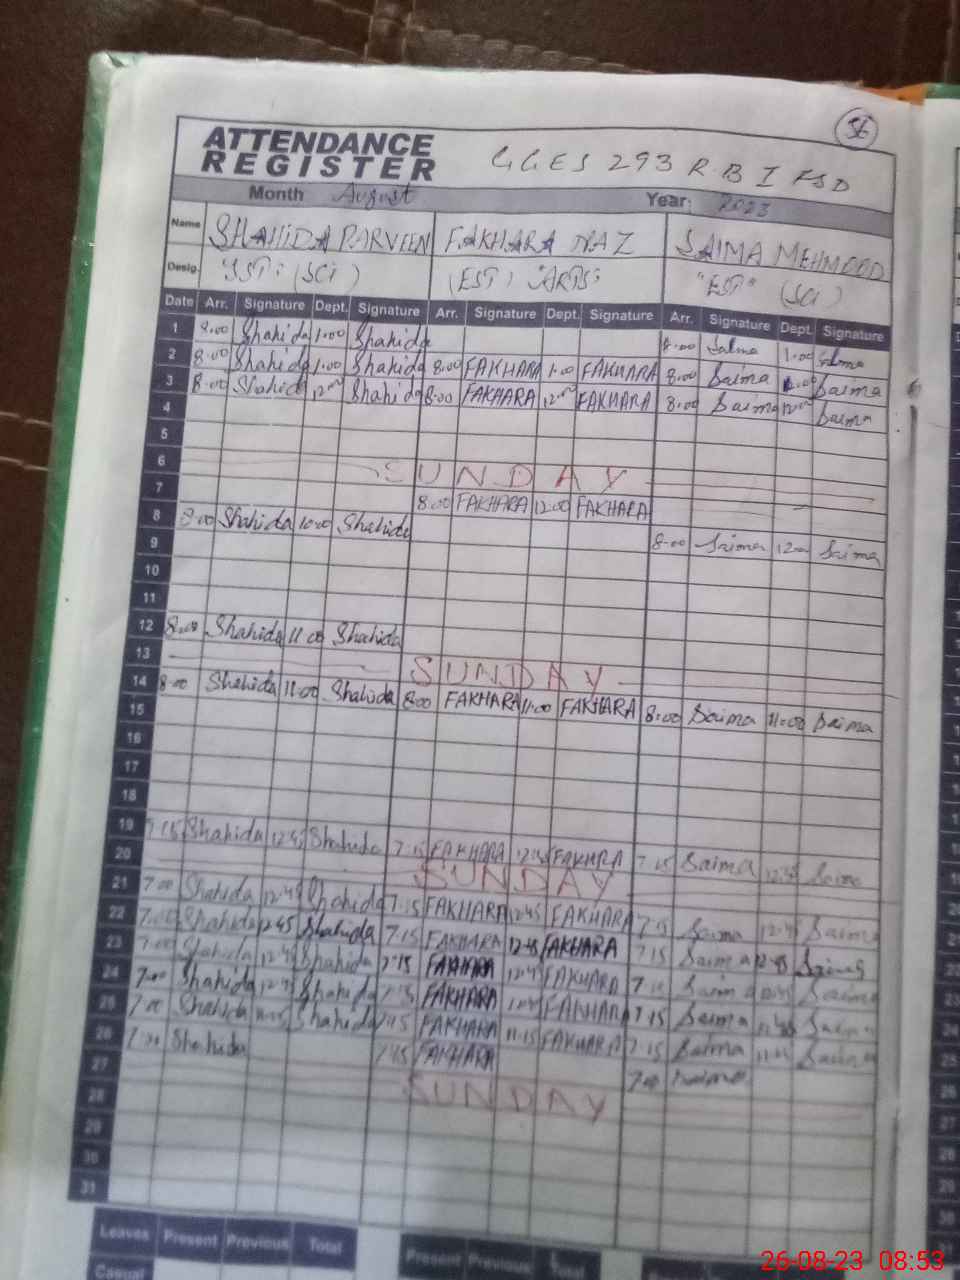 56
ATTENDANCE
REGISTER
GGES 293 R.B I FSD
Month August Year: 2023
Name SHAHIDA PARVEEN FAKHARA NAZ SAIMA MEHMOOD
Desig. (SCI) (EST) "ARTS" "EST" (SCI)
Date Arr. Signature Dept. Signature Arr. Signature Dept. Signature Arr. Signature Dept. Signature
1 8:00 Shahida 1:00 Shahida 8:00 Saima 1:00 Saima
2 8:00 Shahida 1:00 Shahida 8:00 FAKHARA 1:00 FAKHARA 8:00 Saima Saima
3 8:00 Shahida 12:00 Shahida 8:00 FAKHARA 12:00 FAKHARA 8:00 Saima 12:00 Saima
4
5
6 SUNDAY
7 8:00 FAKHARA 12:00 FAKHARA
8 8:00 Shahida 10:00 Shahida
9 8:00 Saima 12:00 Saima
10
11
12 8:00 Shahida 11:00 Shahida
13 SUNDAY
14 8:00 Shahida 11:00 Shahida 8:00 FAKHARA 11:00 FAKHARA
15 8:00 Saima 11:00 Saima
16
17
18
19 7:15 Shahida 12:45 Shahida 7:15 FAKHARA 12:45 FAKHARA 7:15 Saima 12:45 Saima
20 SUNDAY
21 7:00 Shahida 12:45 Shahida 7:15 FAKHARA 12:45 FAKHARA 7:15 Saima 12:45 Saima
22 7:00 Shahida 12:45 Shahida 7:15 FAKHARA 12:45 FAKHARA 7:15 Saima 12:45 Saima
23 7:00 Shahida 12:45 Shahida 7:15 FAKHARA 12:45 FAKHARA 7:15 Saima 12:45 Saima
24 7:00 Shahida 12:45 Shahida 7:15 FAKHARA FAKHARA 7:15 Saima Saima
25 7:00 Shahida Shahida 7:15 FAKHARA 11:15 FAKHARA 7:15 Saima Saima
26 7:00 Shahida 7:15 FAKHARA 7:00 Saima
27 SUNDAY
28
29
30
31
Leaves Present Previous Total Present Previous
Casual
26-08-23 08:53